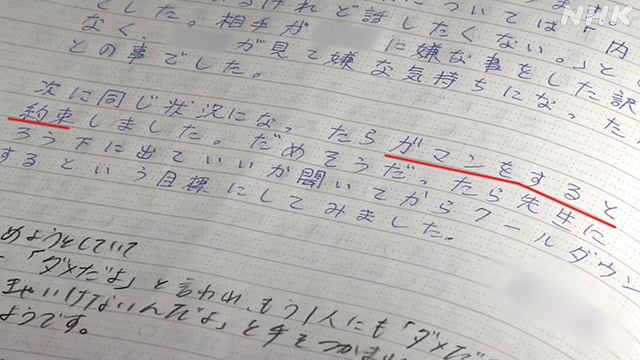 NHK
については「内
いるけれど話したくない。」と
とした。相手が に嫌な事をした訳
なく、 が見て嫌な気持ちになった
との事でした。
次に同じ状況になったらガマンをすると
約束しました。だめそうだったら先生に
ろう下に出ていいか聞いてからクールダウン
するという目標にしてみました。
めようとしていて
「ダメだよ」と言われ、もう1人にも「ダメだ
いけないんだよ」と手をつか
ようです。